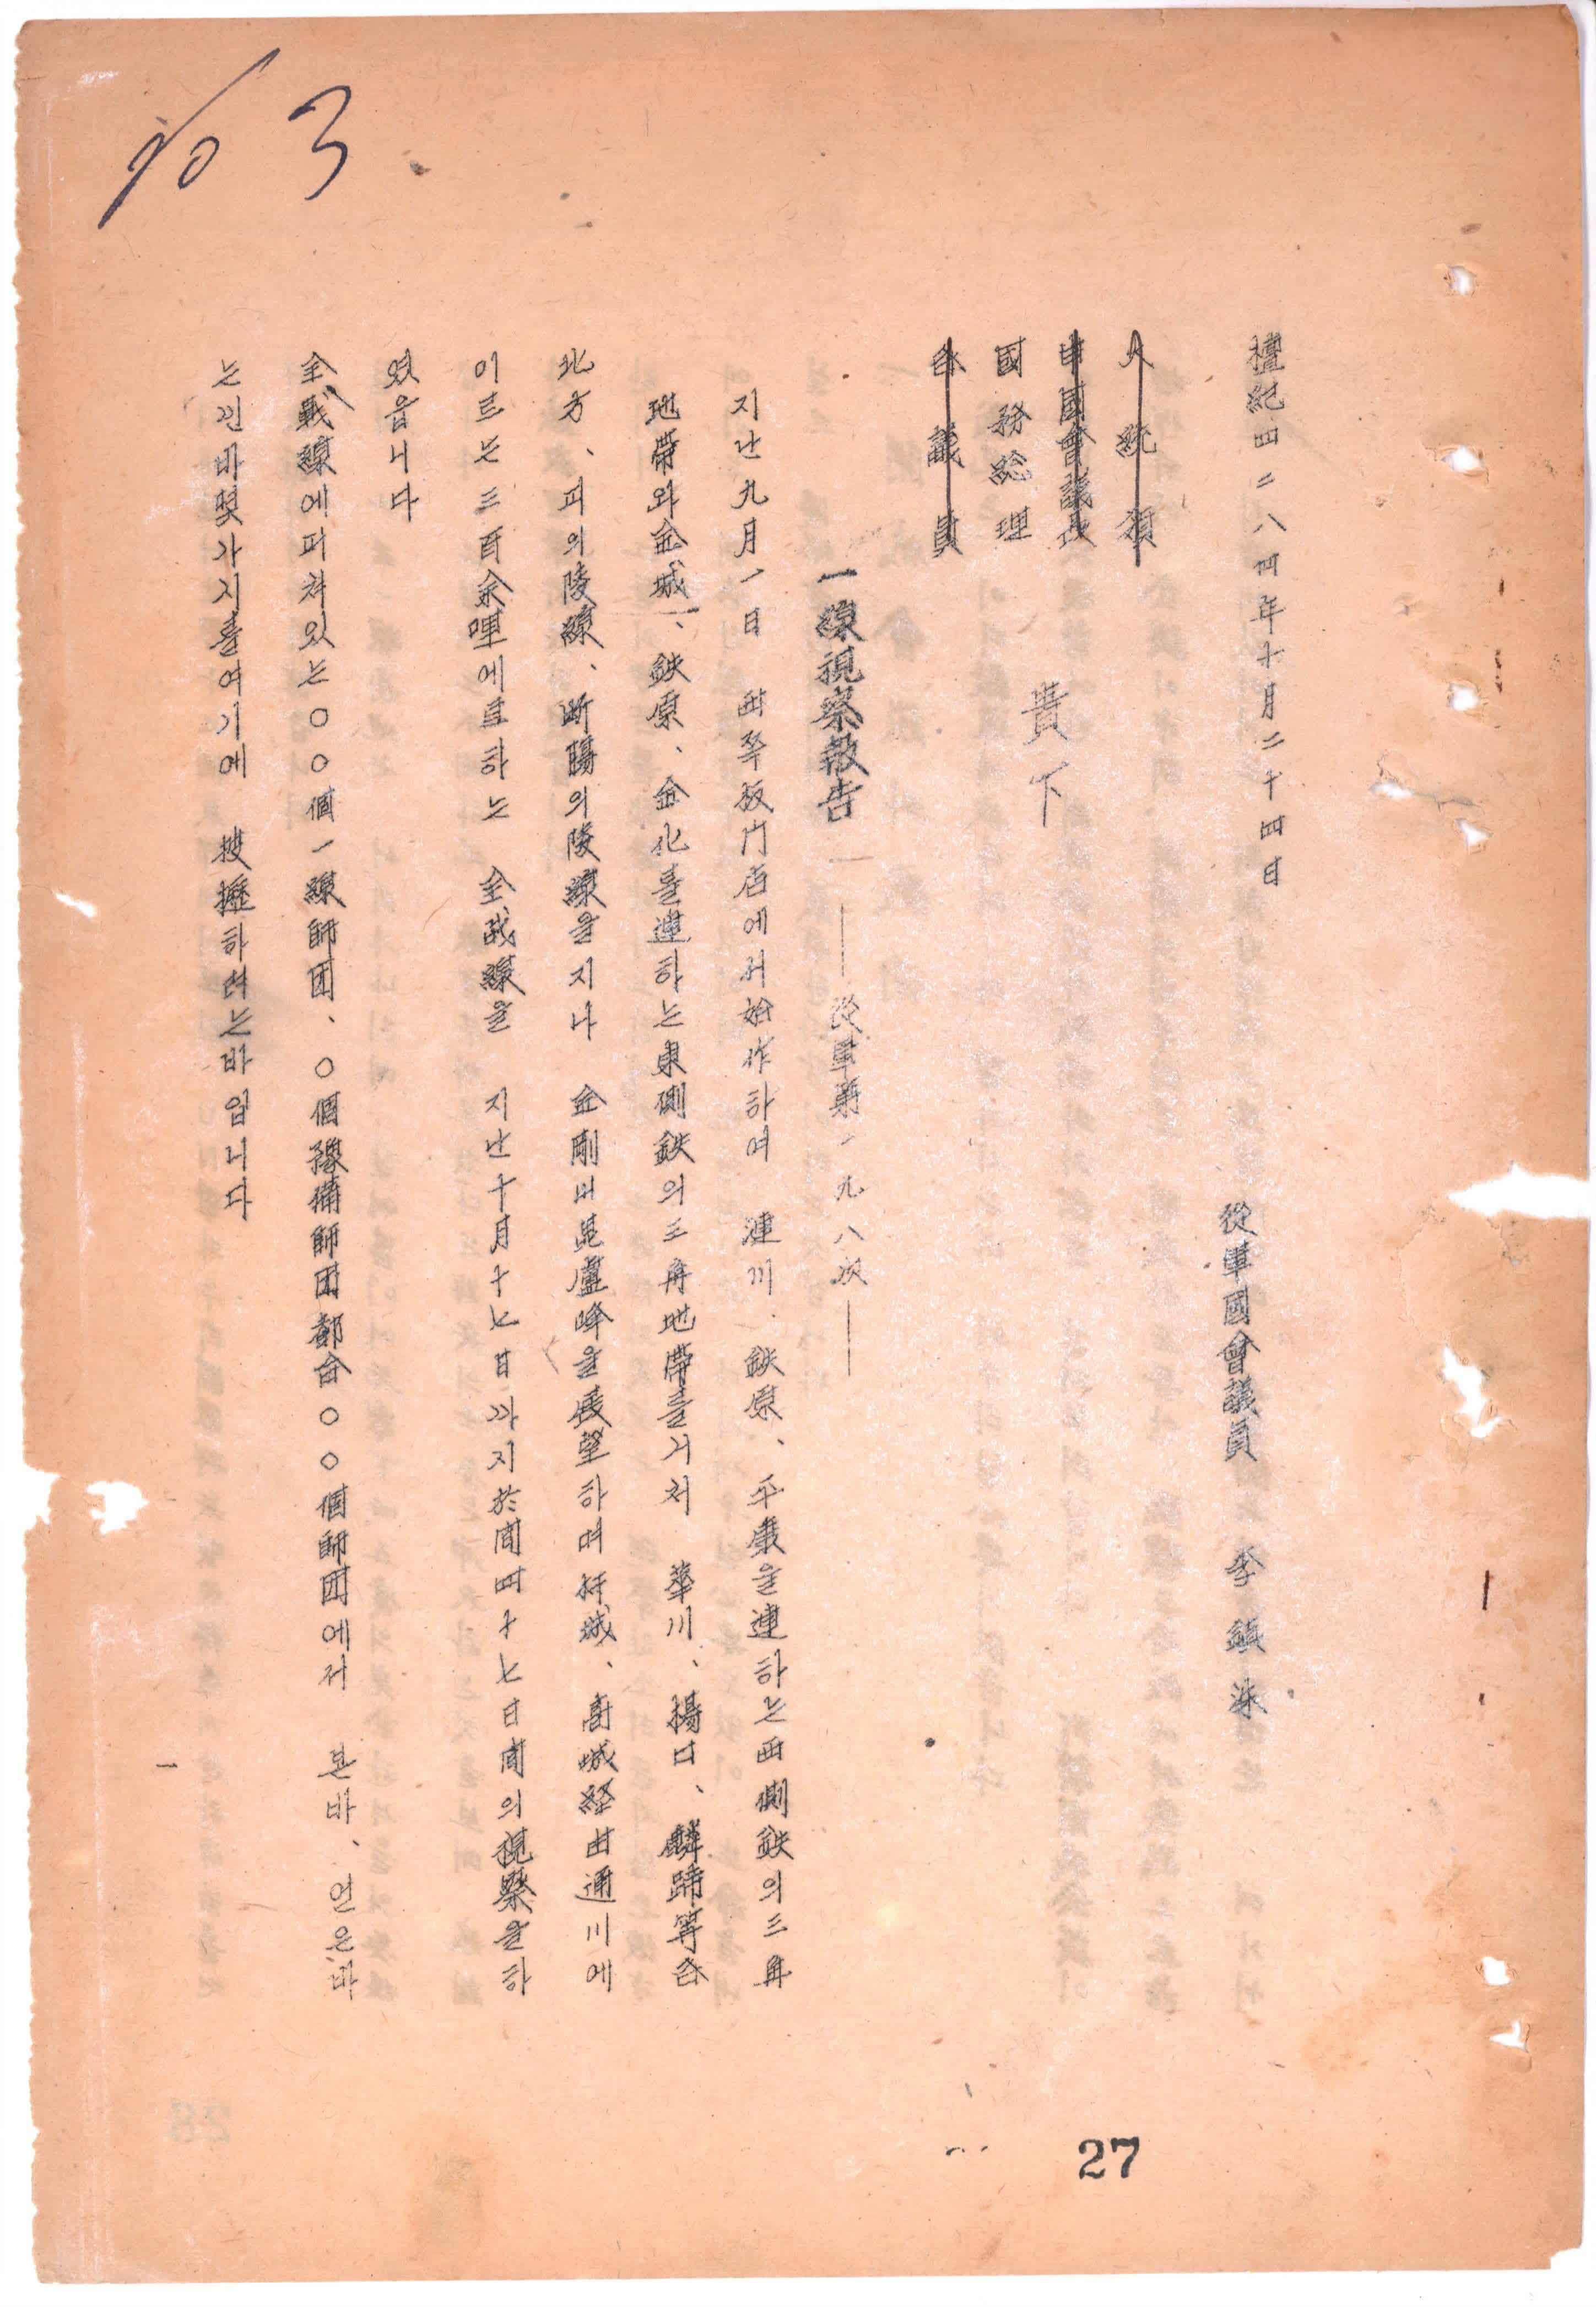 No 3
檀紀四二八四年十月二十四日
從軍國會議員 李鎭洙
大統領
申國會議長
國務総理
各議員
貴下
一線視察報告 ——從軍第一九八次——
지난九月一日 西쪽板門店에서始作하여 漣川、鉄原、平康을連하는西側鉄의三角
地帶와金城、鉄原、金化를連하는東側鉄의三角地帶를거처 華川、楊口、麟蹄等各
北方、피의陵線、断腸의陵線을지나 金剛山毘盧峰을展望하며杆城、高城経由通川에
이르는三百余哩에 하는 全戰線을 지난十月十七日까지於間四十七日間의視察을하
였읍니다
全戰線에퍼처있는○○個一線師団、○個豫備師団都合○○個師団에서 본바、얻은바
느낀바몇가지를여기에 披攊하려는바입니다
27